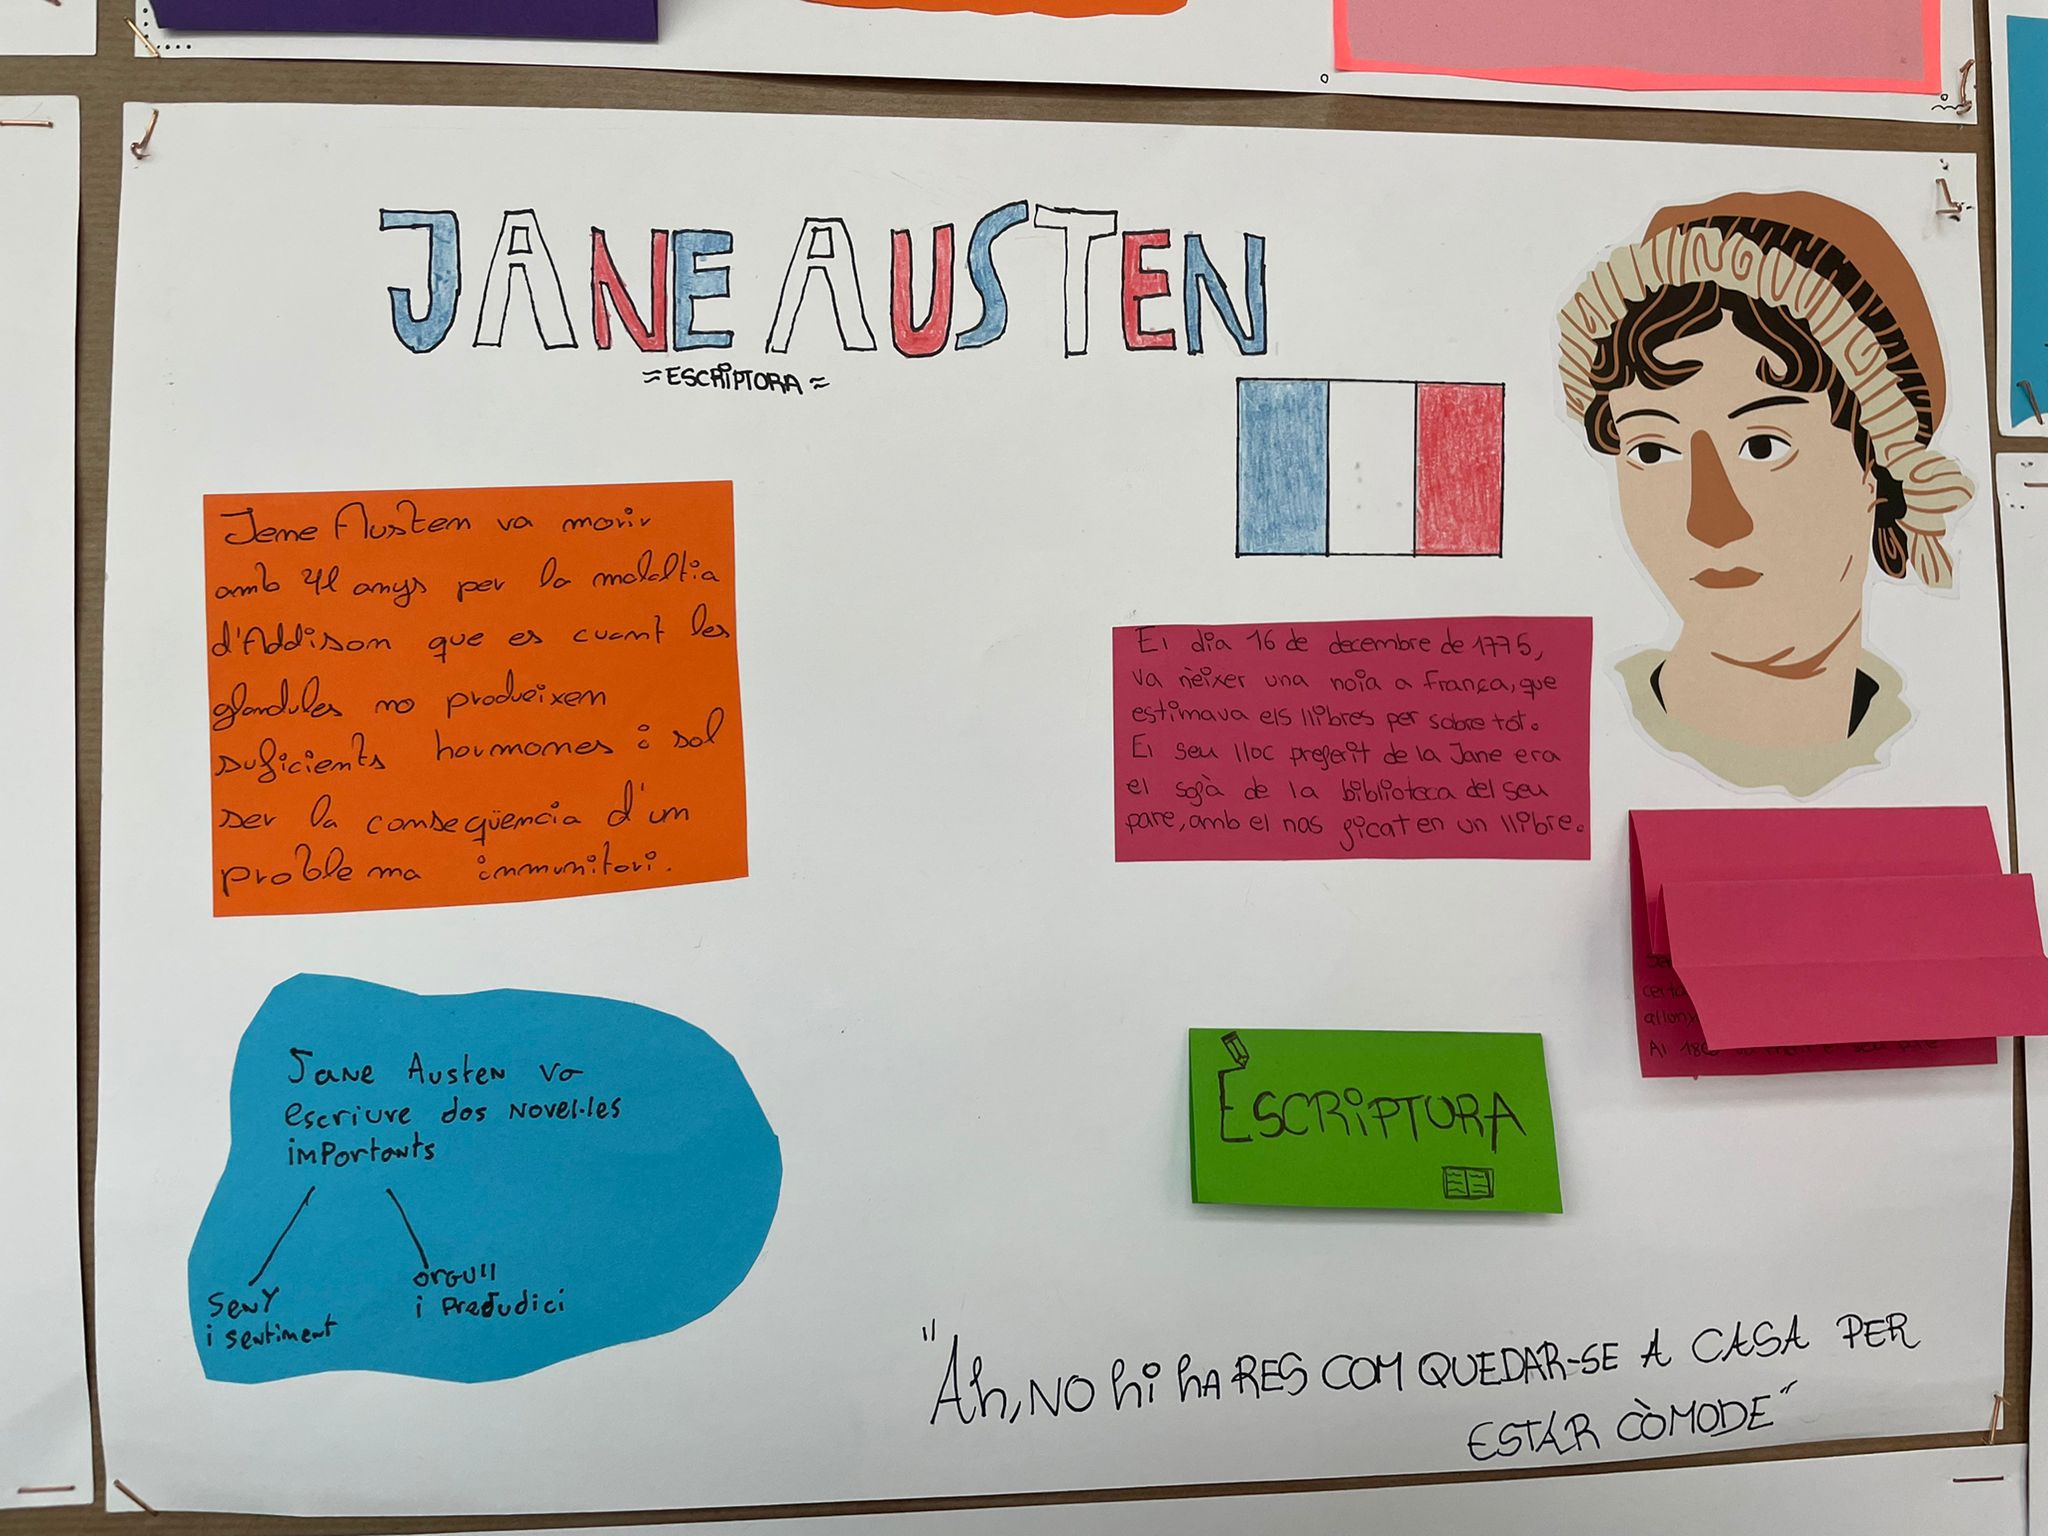 JANE AUSTEN
≈ESCRIPTORA≈
Jene Austen va morir
amb 41 anys per la malaltia
d'Addison que es cuant les
glandules no produeixen
suficients hormones i sol
ser la conseqüencia d'un
problema immunitari.
El dia 16 de decembre de 1775,
va nèixer una noia a frança, que
estimava els llibres per sobre tot.
El seu lloc preferit de la Jane era
el sofà de la biblioteca del seu
pare, amb el nas ficat en un llibre.
Al
Jane Austen va
escriure dos novel·les
importants
seny
i sentiment
orgull
i prejudici
ESCRIPTURA
"Ah, NO hi hA RES COM QUEDAR-SE A CASA PER
ESTÁR CÒMODE"